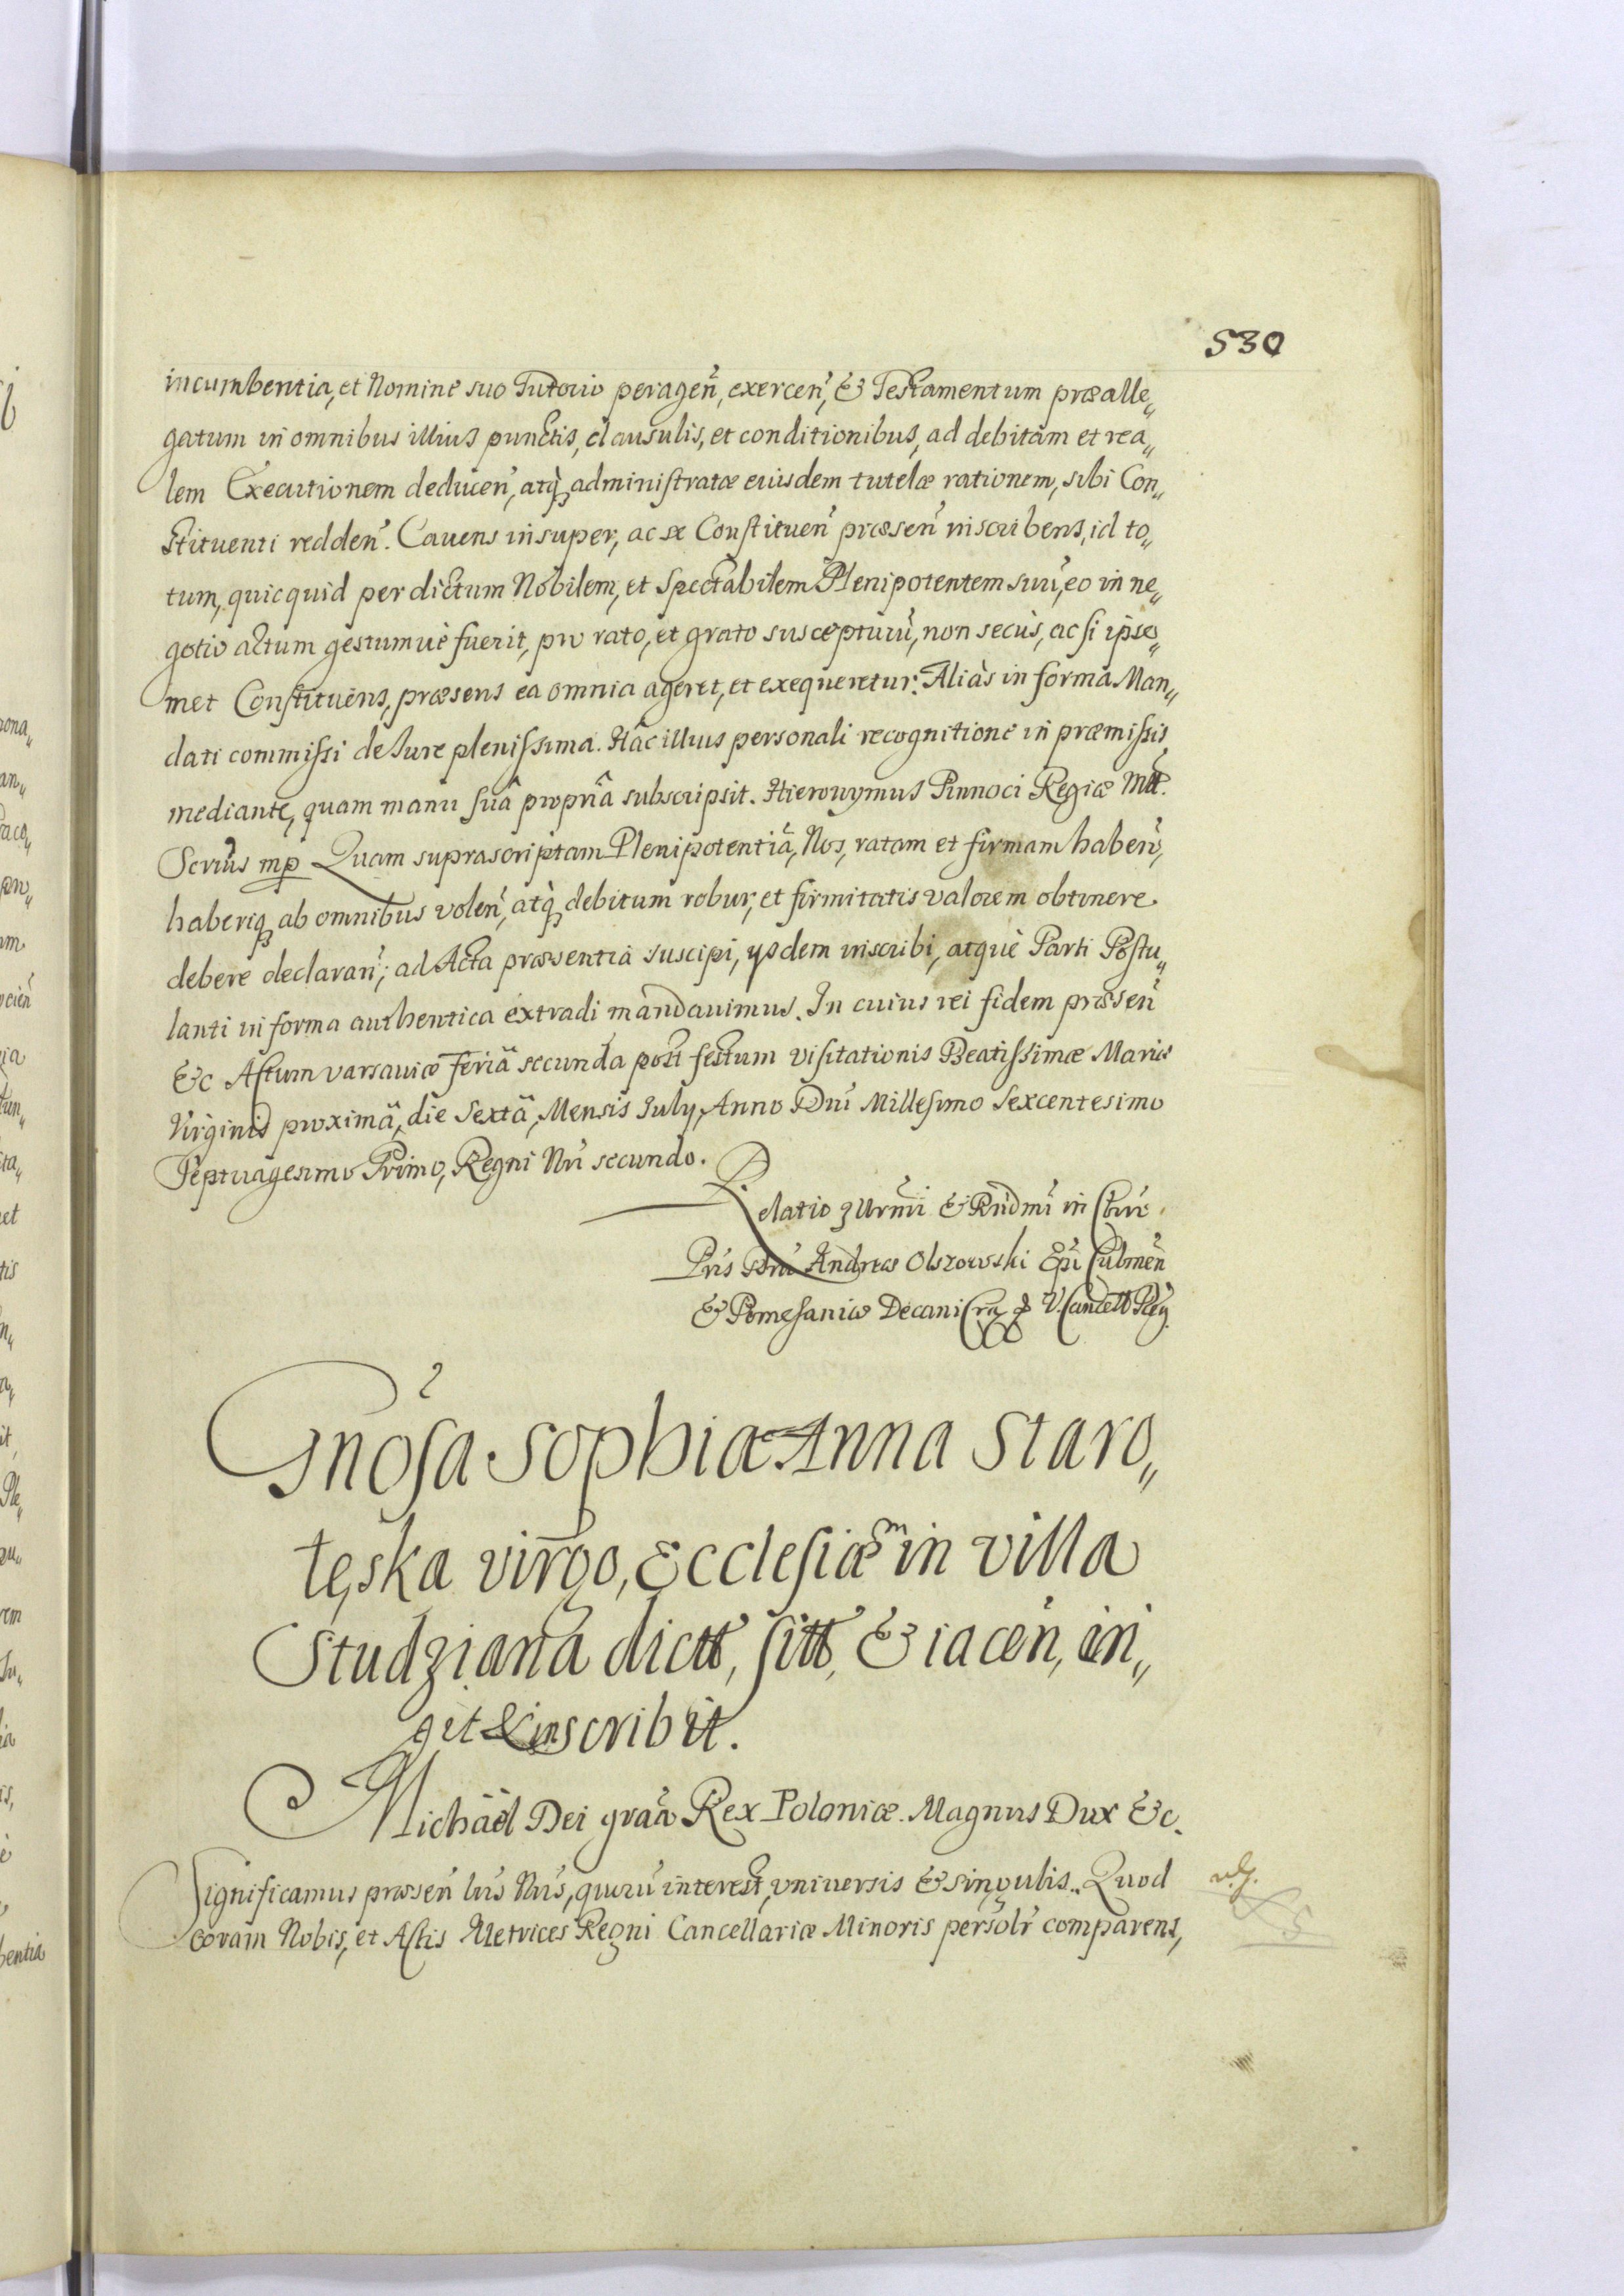 530
incumbentia, et Nomine suo Tutorio peragen̄, exercen̄, & Testamentum præalle„
gatum in omnibus illius punctis, clausulis, et conditionibus, ad debitam et rea„
lem Executionem deducen̄, atq₃ administratæ eiusdem tutelæ rationem, sibi Con„
stituenti redden̄. Cavens insuper, ac se Constituen̄ præsen̄ inscribens, id to„
tum, quicquid per dictum Nobilem, et Spectabilem Plenipotentem suū, eo in ne„
gotio actum gestumuè fuerit, pro rato, et grato suscepturū, non secùs, ac si ipse„
met Constituens, præsens ea omnia ageret, et exequeretur: Aliàs in formâ Man„
dati commissi de Iure plenissima. Hâc illius personali recognitione in præmissis
mediante, quam manu suâ propriâ subscripsit. Hieronymus Pinnoci Regiæ Mtt̄.
Scrius̄ mp Quam suprascriptam Plenipotentiā, Nos, ratam et firmam haben̄,
haberiq₃ ab omnibus volen̄, atq₃ debitum robur, et firmitatis valorem obtinere
debere declaran̄; ad Acta præsentia suscipi, ysdem inscribi, atquè Parti Postu„
lanti in forma authentica extradi mandauimus. In cuius rei fidem præsen̄
&c Actum varsauiæ Feriâ secunda post festum visitationis Beatissimæ Mariæ
Virginis proximâ, die Sextâ, Mensis July, Anno Dnī Millesimo Sexcentesimo
Septuagesimo Primo, Regni Nrī secundo.
Relatio Illrmī & Rndmī in Chrō
Pris Dnī Andreæ Olszowski Epī Culmen̄
& Pomesaniæ Decani Crā & V. Cancell Regn
Gnōsa Sophia Anna Staro„
tęska virgo, Ecclesiæ in villa
Studziana dictt, sitt, & iacen̄, in„
git & inscribit.
Michäel Dei grāa Rex Poloniæ. Magnus Dux &c.
Significamus præsen̄ lris̄ Nrīs, quorū interest, vniuersis & singulis. Quod
coram Nobis, et Actis Metrices Regni Cancellariæ Minoris persolr̄ comparens,